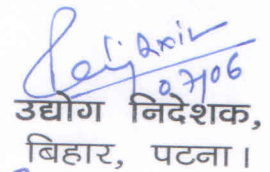 07/06
उद्योग निदेशक,
बिहार, पटना।